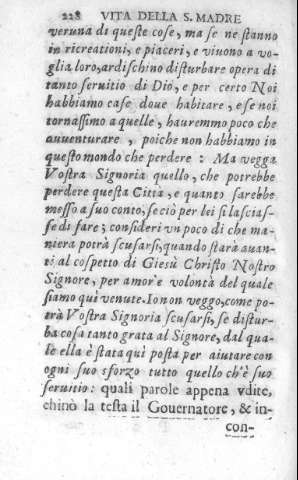 228 VITA DELLA S. MADRE
veruna di queste cose, ma se ne stanno
in ricreationi, e piaceri, e vivono a vo-
glia loro, ardischino disturbare opera di
tanto servitio di Dio, e per certo Noi
habbiamo case doue habitare, e se noi
tornassimo a quelle, hauremmo poco che
auuenturare, poiche non habbiamo in
questo mondo che perdere: Ma vegga
Vostra Signoria quello, che potrebbe
perdere questa Città, e quanto sarebbe
messo a suo conto, se ciò per lei si lascias-
se di fare; consideri vn poco di che ma-
niera potrà scusarsi, quando starà auan-
ti al cospetto di Giesù Christo Nostro
Signore, per amor'e volontà del quale
siamo quì venute. Io non veggo, come po-
trà Vostra Signoria scusarsi, se distur-
ba cosa tanto grata al Signore, dal qua-
le ella è stata quì posta per aiutare con
ogni suo sforzo tutto quello ch'è suo
seruitio: quali parole appena vdite,
chinò la testa il Gouernatore, & in-
con-